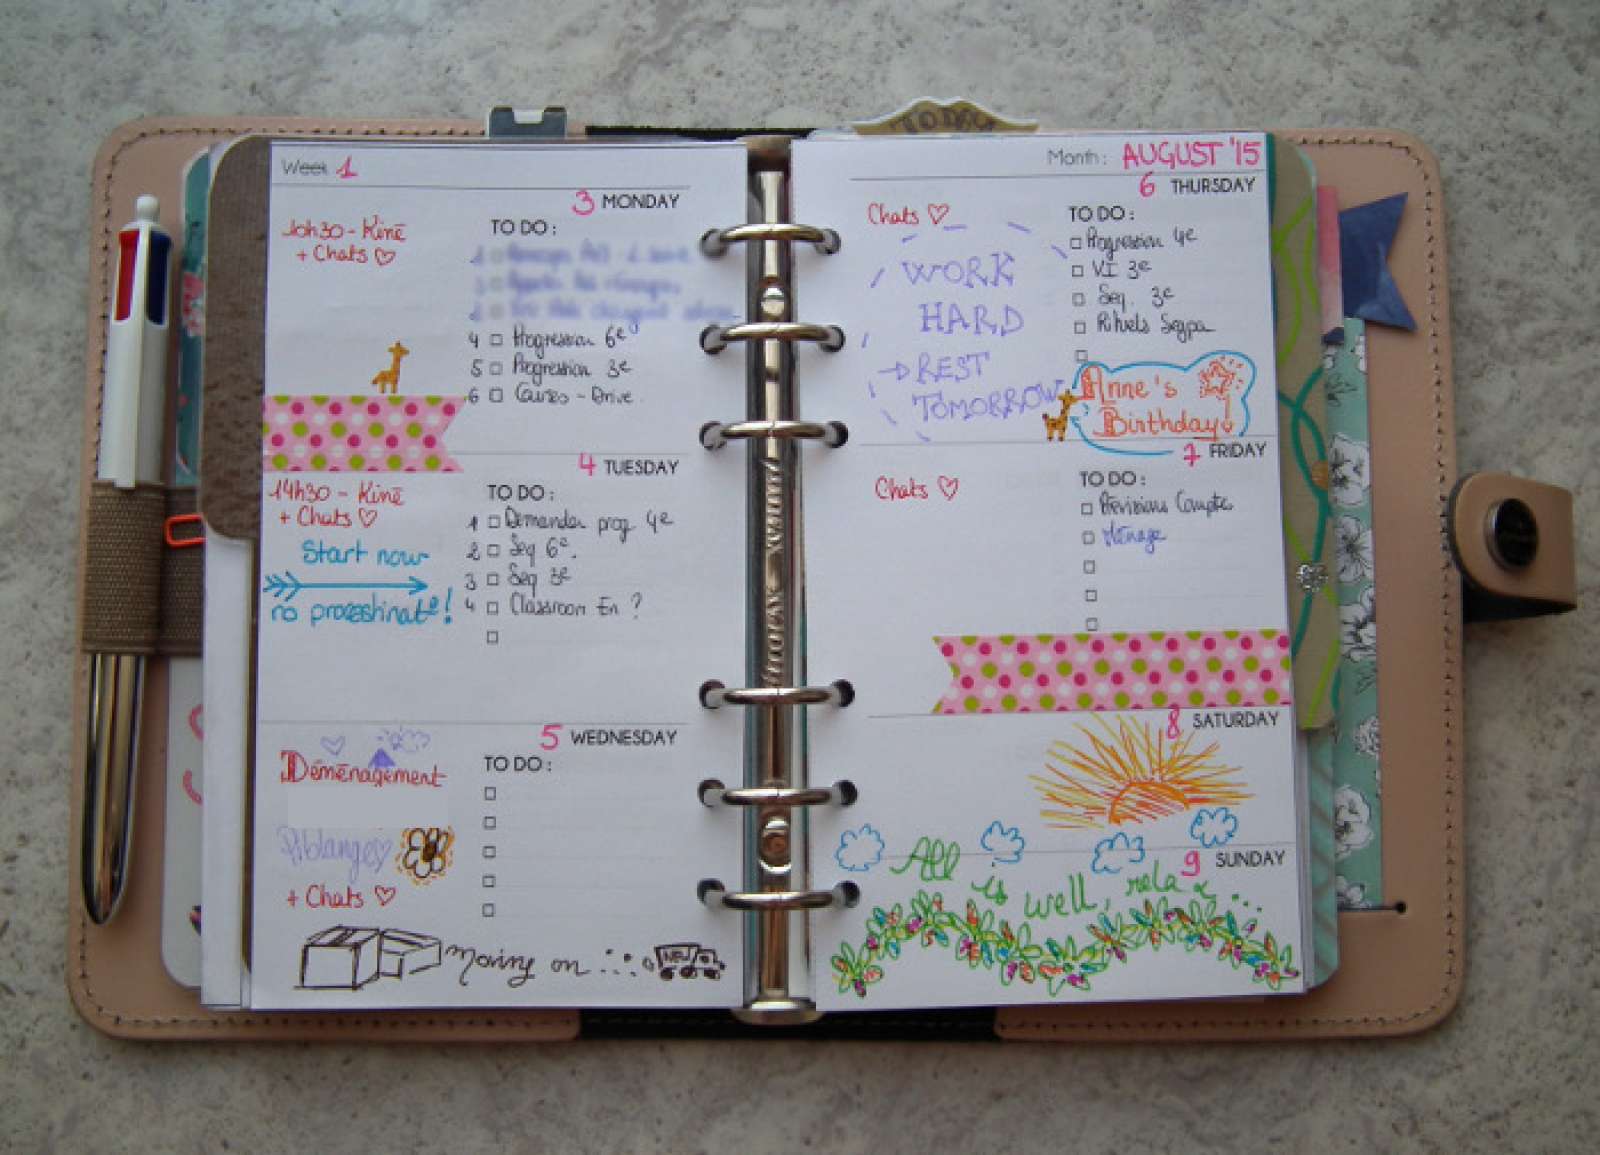 Week 1
3 MONDAY
10h30 - Kiné
+ Chats
TO DO :
4 Progression 6e
5 Progression 3e
6 Courses - Drive
4 TUESDAY
14h30 - Kiné
+ Chats
Start now
no procrastinate!
TO DO :
1 Demander prog 4e
2 Seq 6e.
3 Seq 3e
4 Classroom En ?
5 WEDNESDAY
Déménagement
+ Chats
TO DO :
Moving on ...
Month: AUGUST '15
6 THURSDAY
Chats
WORK
HARD
→ REST
TOMORROW
TO DO :
Progression 4e
VI 3e
Seq. 3e
Rituels Segpa
Anne's
Birthday!
7 FRIDAY
Chats
TO DO :
Révisions Compte
Ménage
8 SATURDAY
9 SUNDAY
All is well, relax...